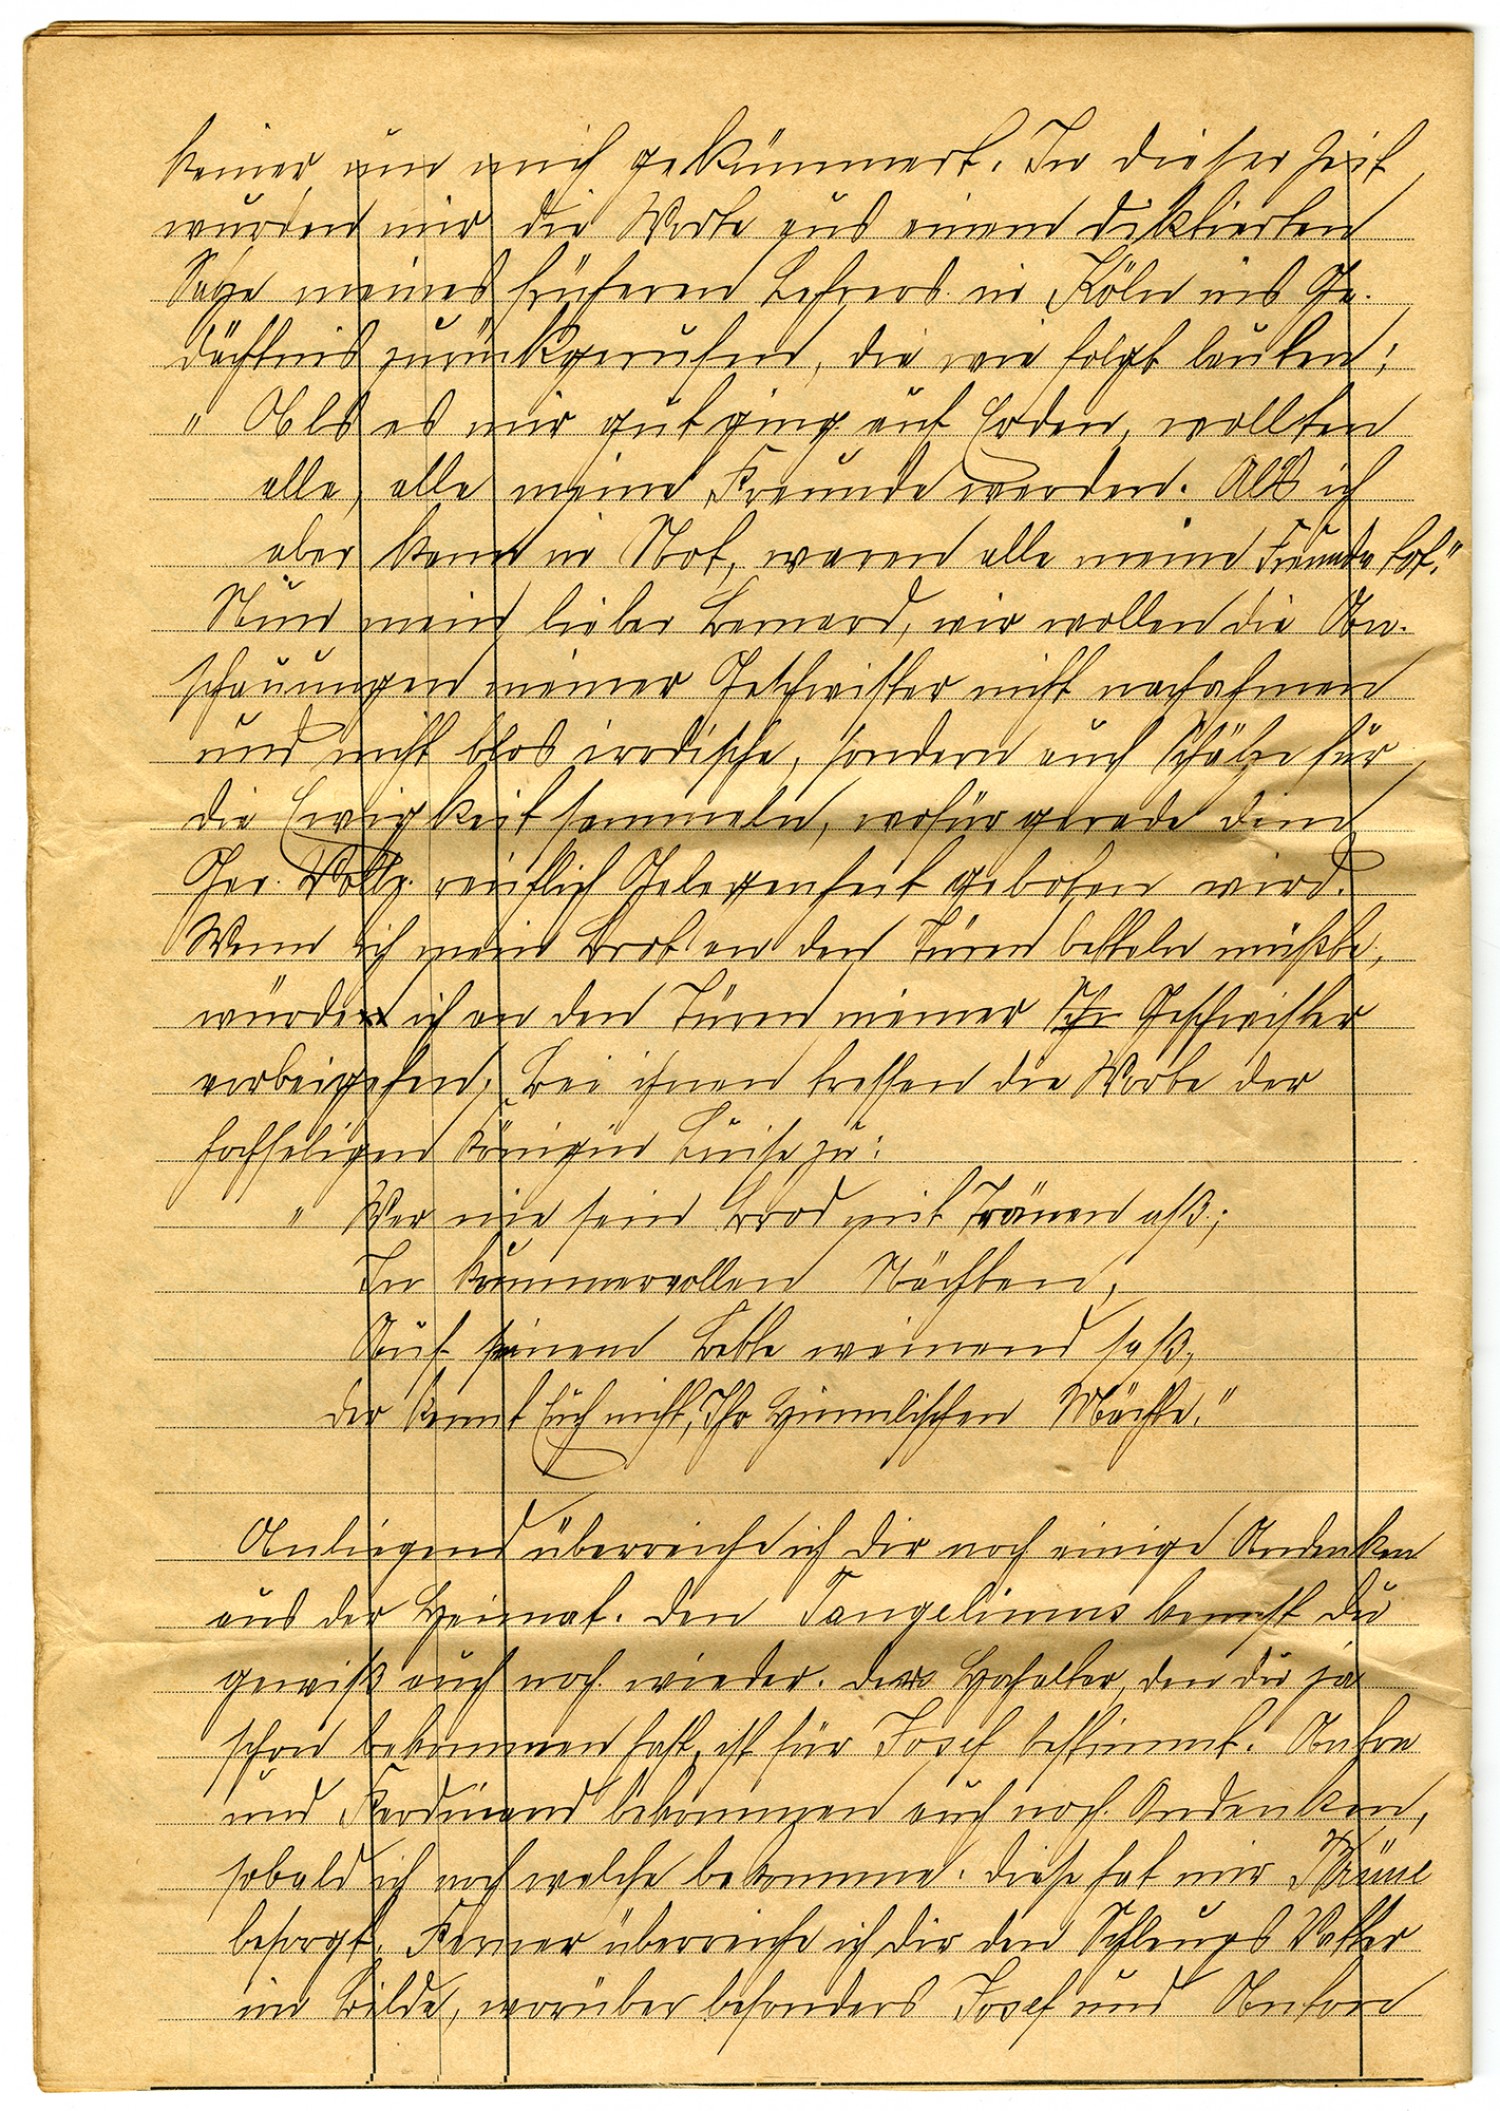 keiner um mich gekümmert. In dieser Zeit
wurden mir die Worte aus einem diktierten
Satze meines früheren Lehrers in Köln ins Ge-
dächtnis zurückgerufen, die wie folgt lauten:
„Als es mir gut ging auf Erden, wollten
alle, alle meine Freunde werden. Als ich
aber kam in Not, waren alle meine Freunde tot."
Nun mein lieber Bernard, wir wollen die An-
schauungen meiner Geschwister nicht nachahmen
und nicht blos irrdische, sondern auch Schätze für
die Ewigkeit sammeln, wofür gerade dem
Ger. Vollz. reichlich Gelegenheit geboten wird.
Wenn ich mein Brot an den Türen betteln müßte,
würde ich an den Türen meiner Geschwister
vorbeigehen, Bei ihnen treffen die Worte der
hochseligen Königin Luise zu:
„Wer nie sein Brod mit Tränen aß;
In kummervollen Nächten,
Auf seinem Bette weinend saß,
der kennt Euch nicht, Ihr Himmlischen Mächte."
Anliegend überreiche ich dir noch einige Andenken
aus der Heimat. den Tangelinus kennst du
gewiß auch noch wieder. der Hochalter, den du ja
schon bekommen hast, ist für Josef bestimmt. Anton
und Ferdinand bekommen auch noch Andenken,
sobald ich noch welche bekomme. diese hat mir
besorgt. Ferner überreiche ich dir den Vatter
im Bilde, worüber besonders Josef und Anton